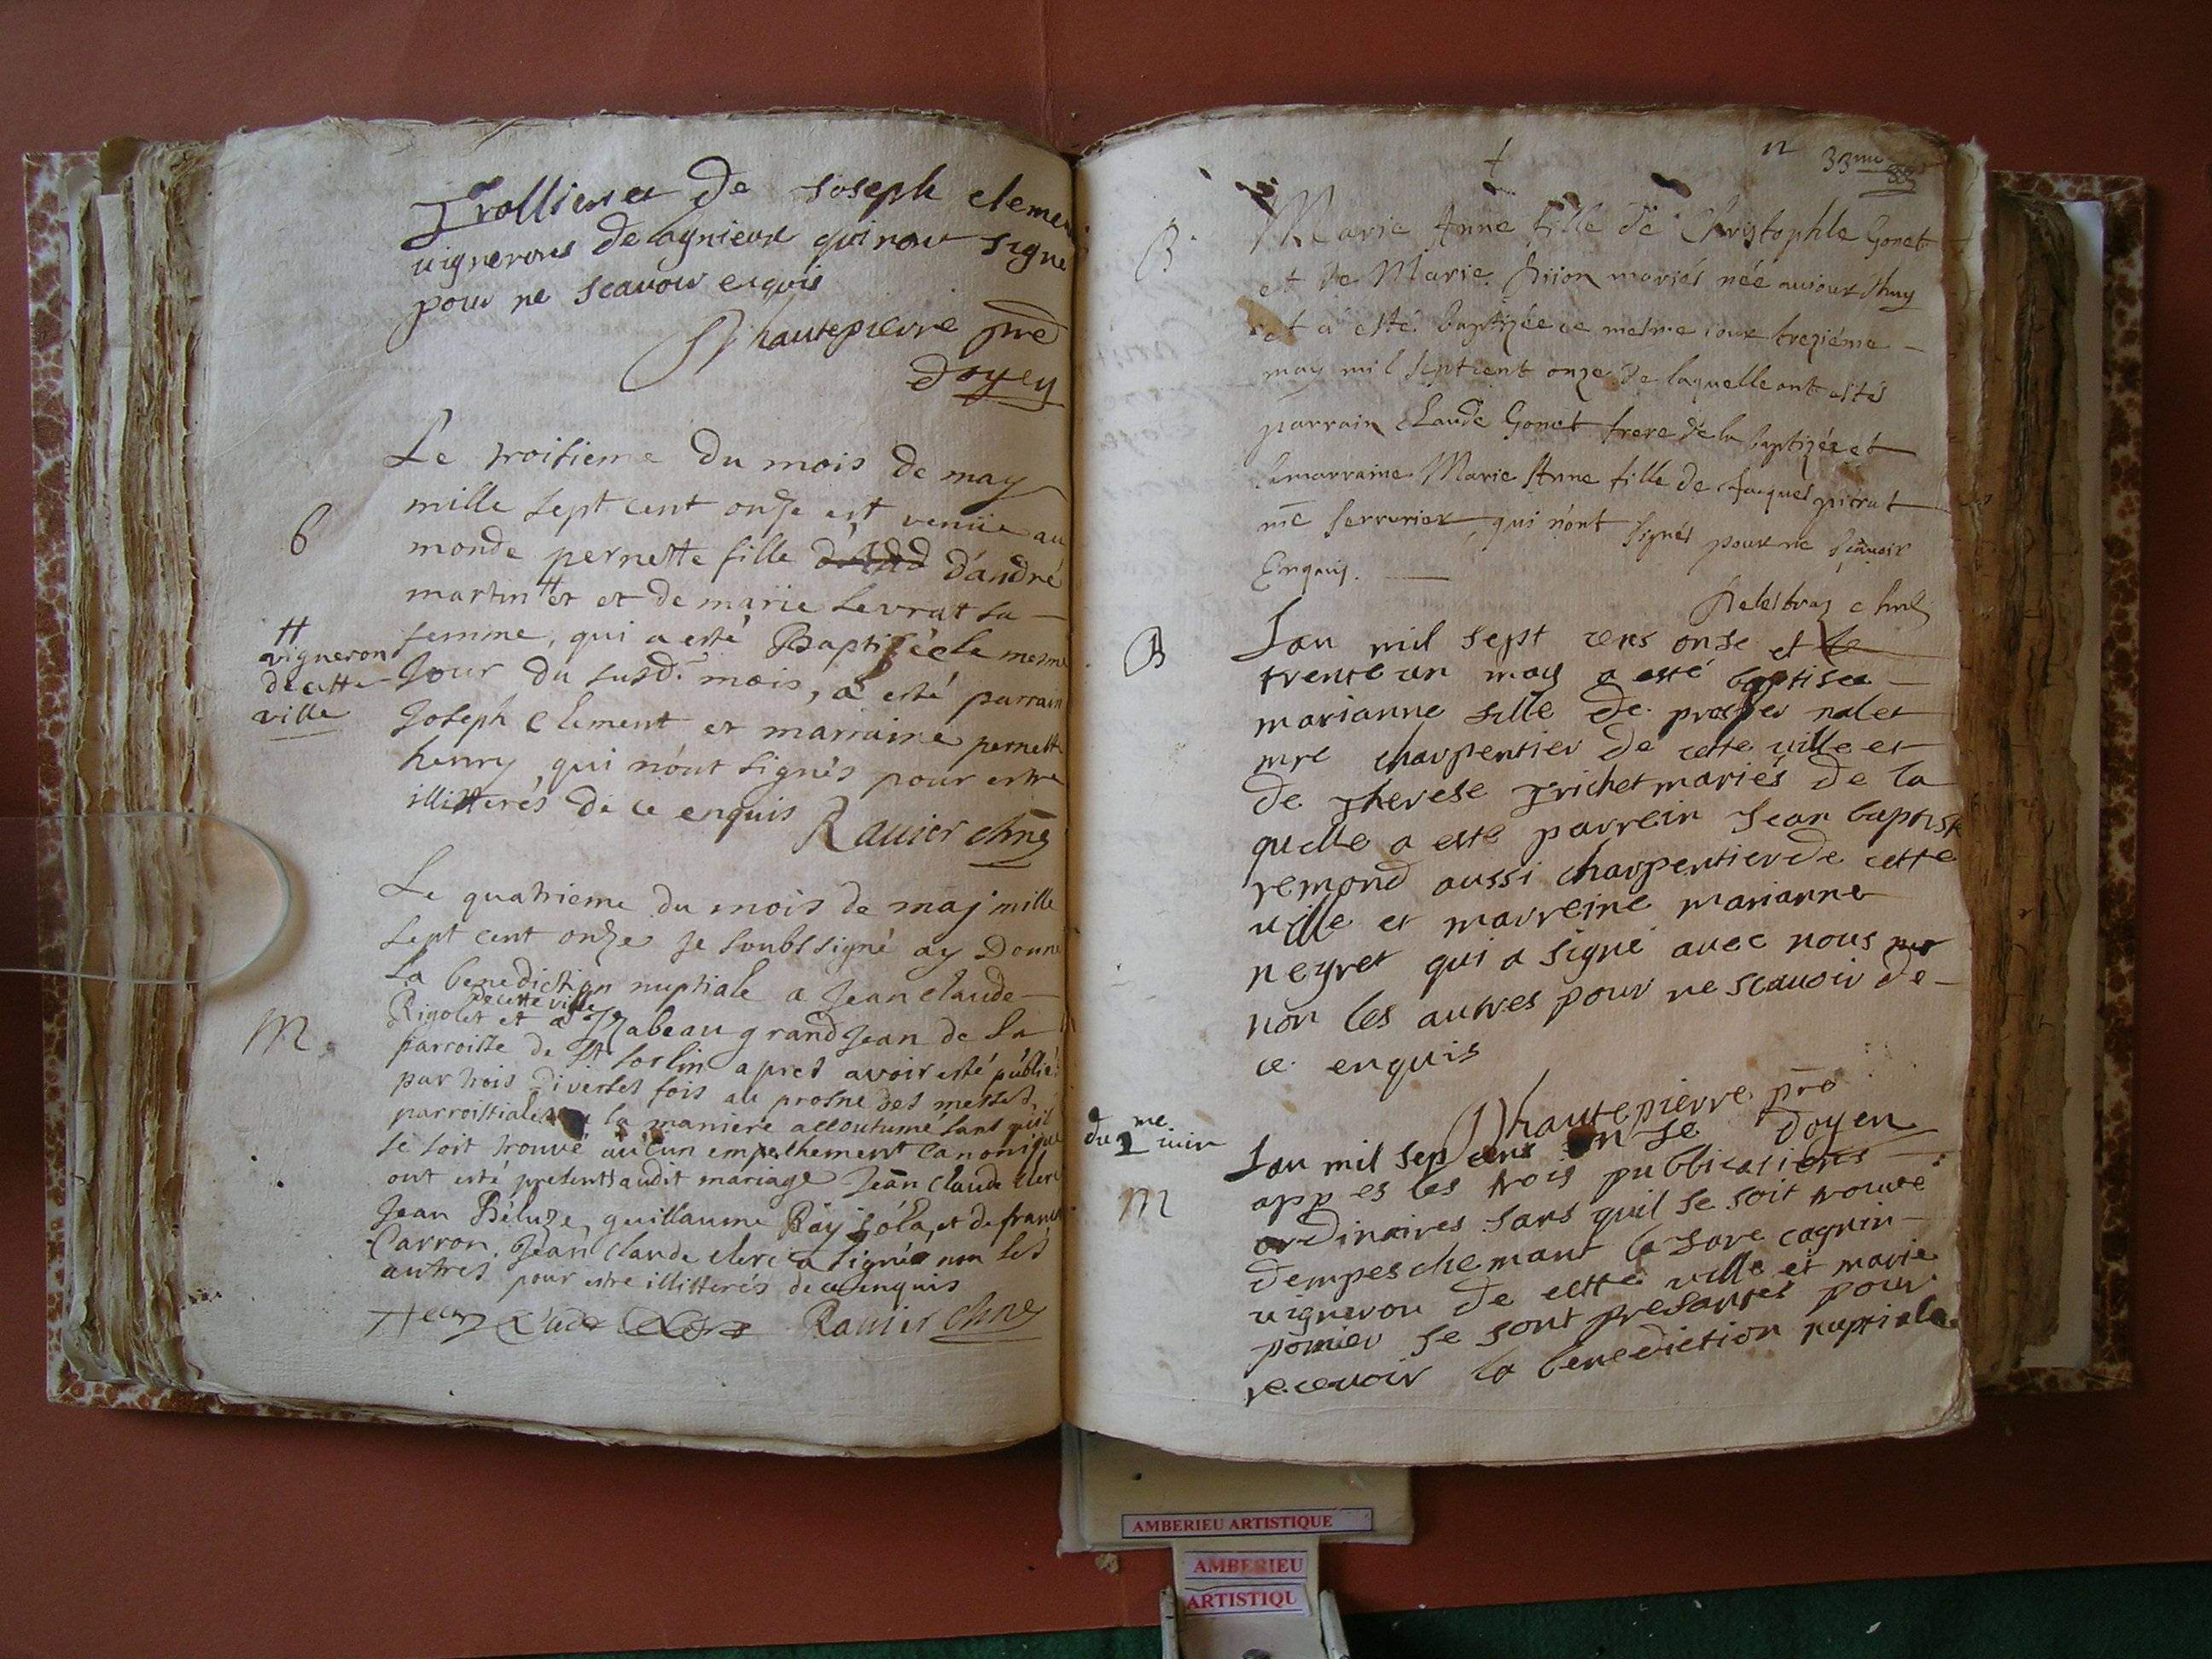 Trollieu et de Joseph clemen
uignerons de lagnieux qui nont signe
pour ne scauoir enquis
Dhautepierre pre
doyen
Le troisieme du mois de may
mille sept cent onze est venüe au
B
monde pernette fille d'andré
martin # et et de marie Levrat sa
femme, qui a esté Baptisée le mesme
#
vigneron
de cette
ville
Jour du susd. mois, a esté parrain
Joseph Clement et marraine pernette
henry, qui n'ont signés pour estre
illitterés de ce enquis
Rauier chne
Le quatrieme du mois de maj mille
sept cent onze je soubssigné ay Donné
La benediction nuptiale a Jean claude
de cette ville
Rigolet et a Isabeau grandjean de la
M
parroisse de St sorlin apres avoir esté publiés
par trois diverses fois au prosne des messes
parroissiales la maniere accoutumé sans qu'il
se soit trouvé aucun empeschement canonique
ont esté presents audit mariage Jean claude clerc
Jean Béluze, guillaume Bay et de francois
Carron. Jean claude clerc a signé non les
autres pour estre illitterés de ce enquis
Jean Claude Clerc Rauier chne
n 33me
B
Marie Anne fille de Christophle Gonet
et de Marie mariés née aujourdhuy
et a esté baptizée ce mesme jour treziéme
may mil septcent onze de laquelle ont estés
parrain Claude Gonet frere de la baptizée et
la marraine Marie Anne fille de Jacques
me serrurier qui n'ont signés pour ne scauoir
Enquis.
chne
B
Lan mil sept cens onse et
trente un may a esté baptisee
marianne fille de prosper nalet
mre charpentier de cette uille et
de Therese Trichet mariés de la
quelle a esté parrein Jean baptiste
remond aussi charpentier de cette
uille et marreine marianne
neyret qui a signé auec nous
non les autres pour ne scauoir de
ce enquis
Dhautepierre pre
doyen
du 2me iuin
M
Lan mil sep cens onse
appres les trois publications
ordinaires sans quil se soit trouué
dempeschemant la sare cagnin
uigneron de cette uille et marie
pomier se sont presantés pour
receuoir la benediction nuptiale
AMBERIEU ARTISTIQUE
AMBERIEU
ARTISTIQU